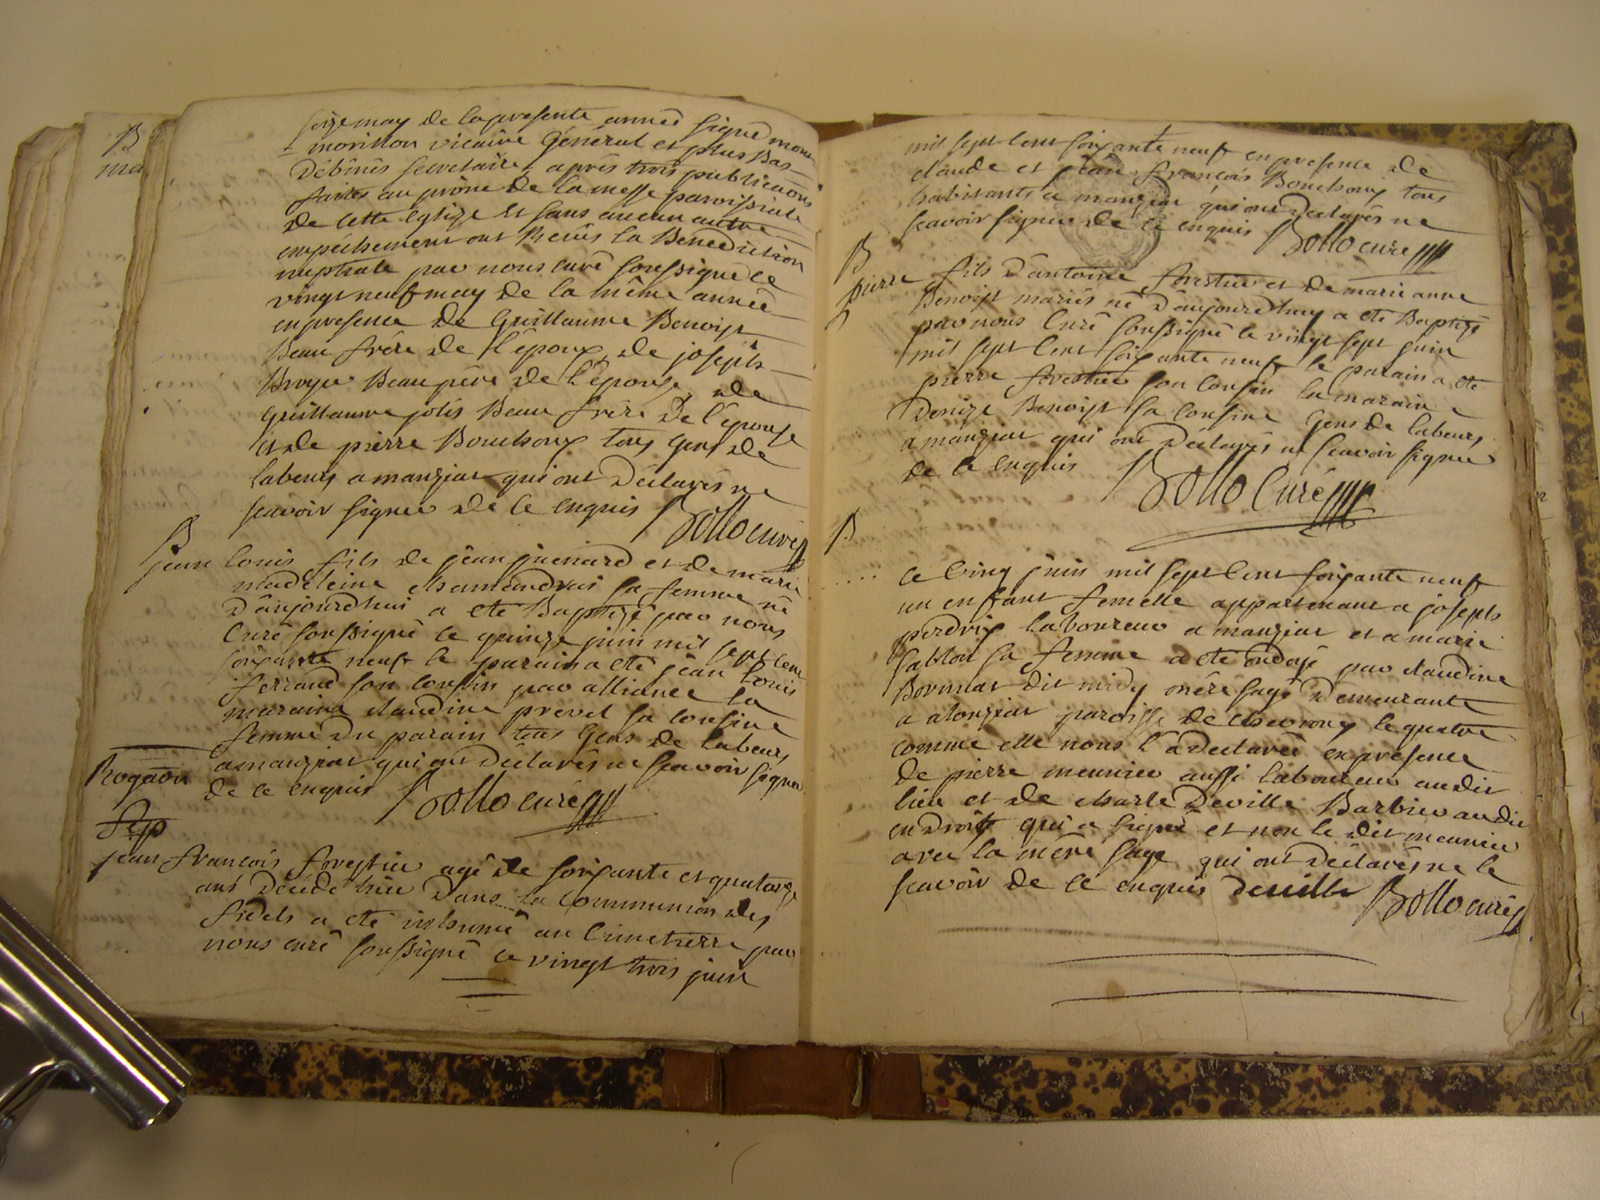 B
ma
seize may de la presente année signé mon
morillon vicaire Général et plus bas
Débiniés secretaire, après trois publications
faites au prône de la messe paroissiale
de cette eglize et sans aucun autre
empéchement ont Reçus la Benediction
nuptiale par nous curé soussigné le
vingt neuf may de la même année
en presence de Guillaume Benoist
Beau frere de l'epoux, de joseph
Broyer Beau père de l'épouse, de
Guillaume jolis Beau frere de l'épouse
et de pierre Bouchoux tous gens de
labeurs a manziat qui ont Déclarés ne
scavoir signer de ce enquis Bollo curé
B
jean Louis fils de jean juenard et de marie
madeleine chamandrai sa femme né
D'aujourdhui a eté Baptizé par nous
Curé soussigné le quinze juin mil sept cent
soixante neuf le parain a eté jean Louis
ferrand son cousin par alliance la
maraine claudine prevel sa cousine
femme du parain tous gens de labeurs
a manziat qui ont Déclarés ne scavoir signer
de ce enquis Bollo curé
Rogation
Sep
jean francois forestier agé de soixante et quatorze
ans Décédé hier Dans la Communion des
fidels a eté inhumé au Cimetierre par
nous curé soussigné ce vingt trois juin
mil sept cent soixante neuf en presence de
claude et jean François Bouchoux tous
habitants a manziat qui ont Declarés ne
scavoir signer de ce enquis Bollo curé
B
pierre fils d'antoine forestier et de marie anne
Benoist mariés né D'aujourdhuy a eté Baptizé
par nous Curé soussigné le vingt sept juin
mil sept Cent soixante neuf le parain a eté
pierre forestier son Cousin la maraine
Denize Benoist sa Cousine Gens de labeurs
a manziat qui ont Déclarés ne scavoir signer
de ce enquis Bollo Curé
B
ce Cinq juin mil sept Cent soixante neuf
un enffant femelle appartenant a joseph
perdrix laboureur a manziat et a marie
sablon sa femme a eté ondoyé par claudine
Bormat dit midy mère sage Demeurante
a alonziat paroisse de chevroux le quatre
comme elle nous l'a declaré en presence
de pierre meunier aussi laboureur audit
lieu et de charle Deville Barbier audit
endroit qui a signé et non le dit meunier
avec la mère sage qui ont Déclarés ne le
scavoir de ce enquis deville Bollo curé